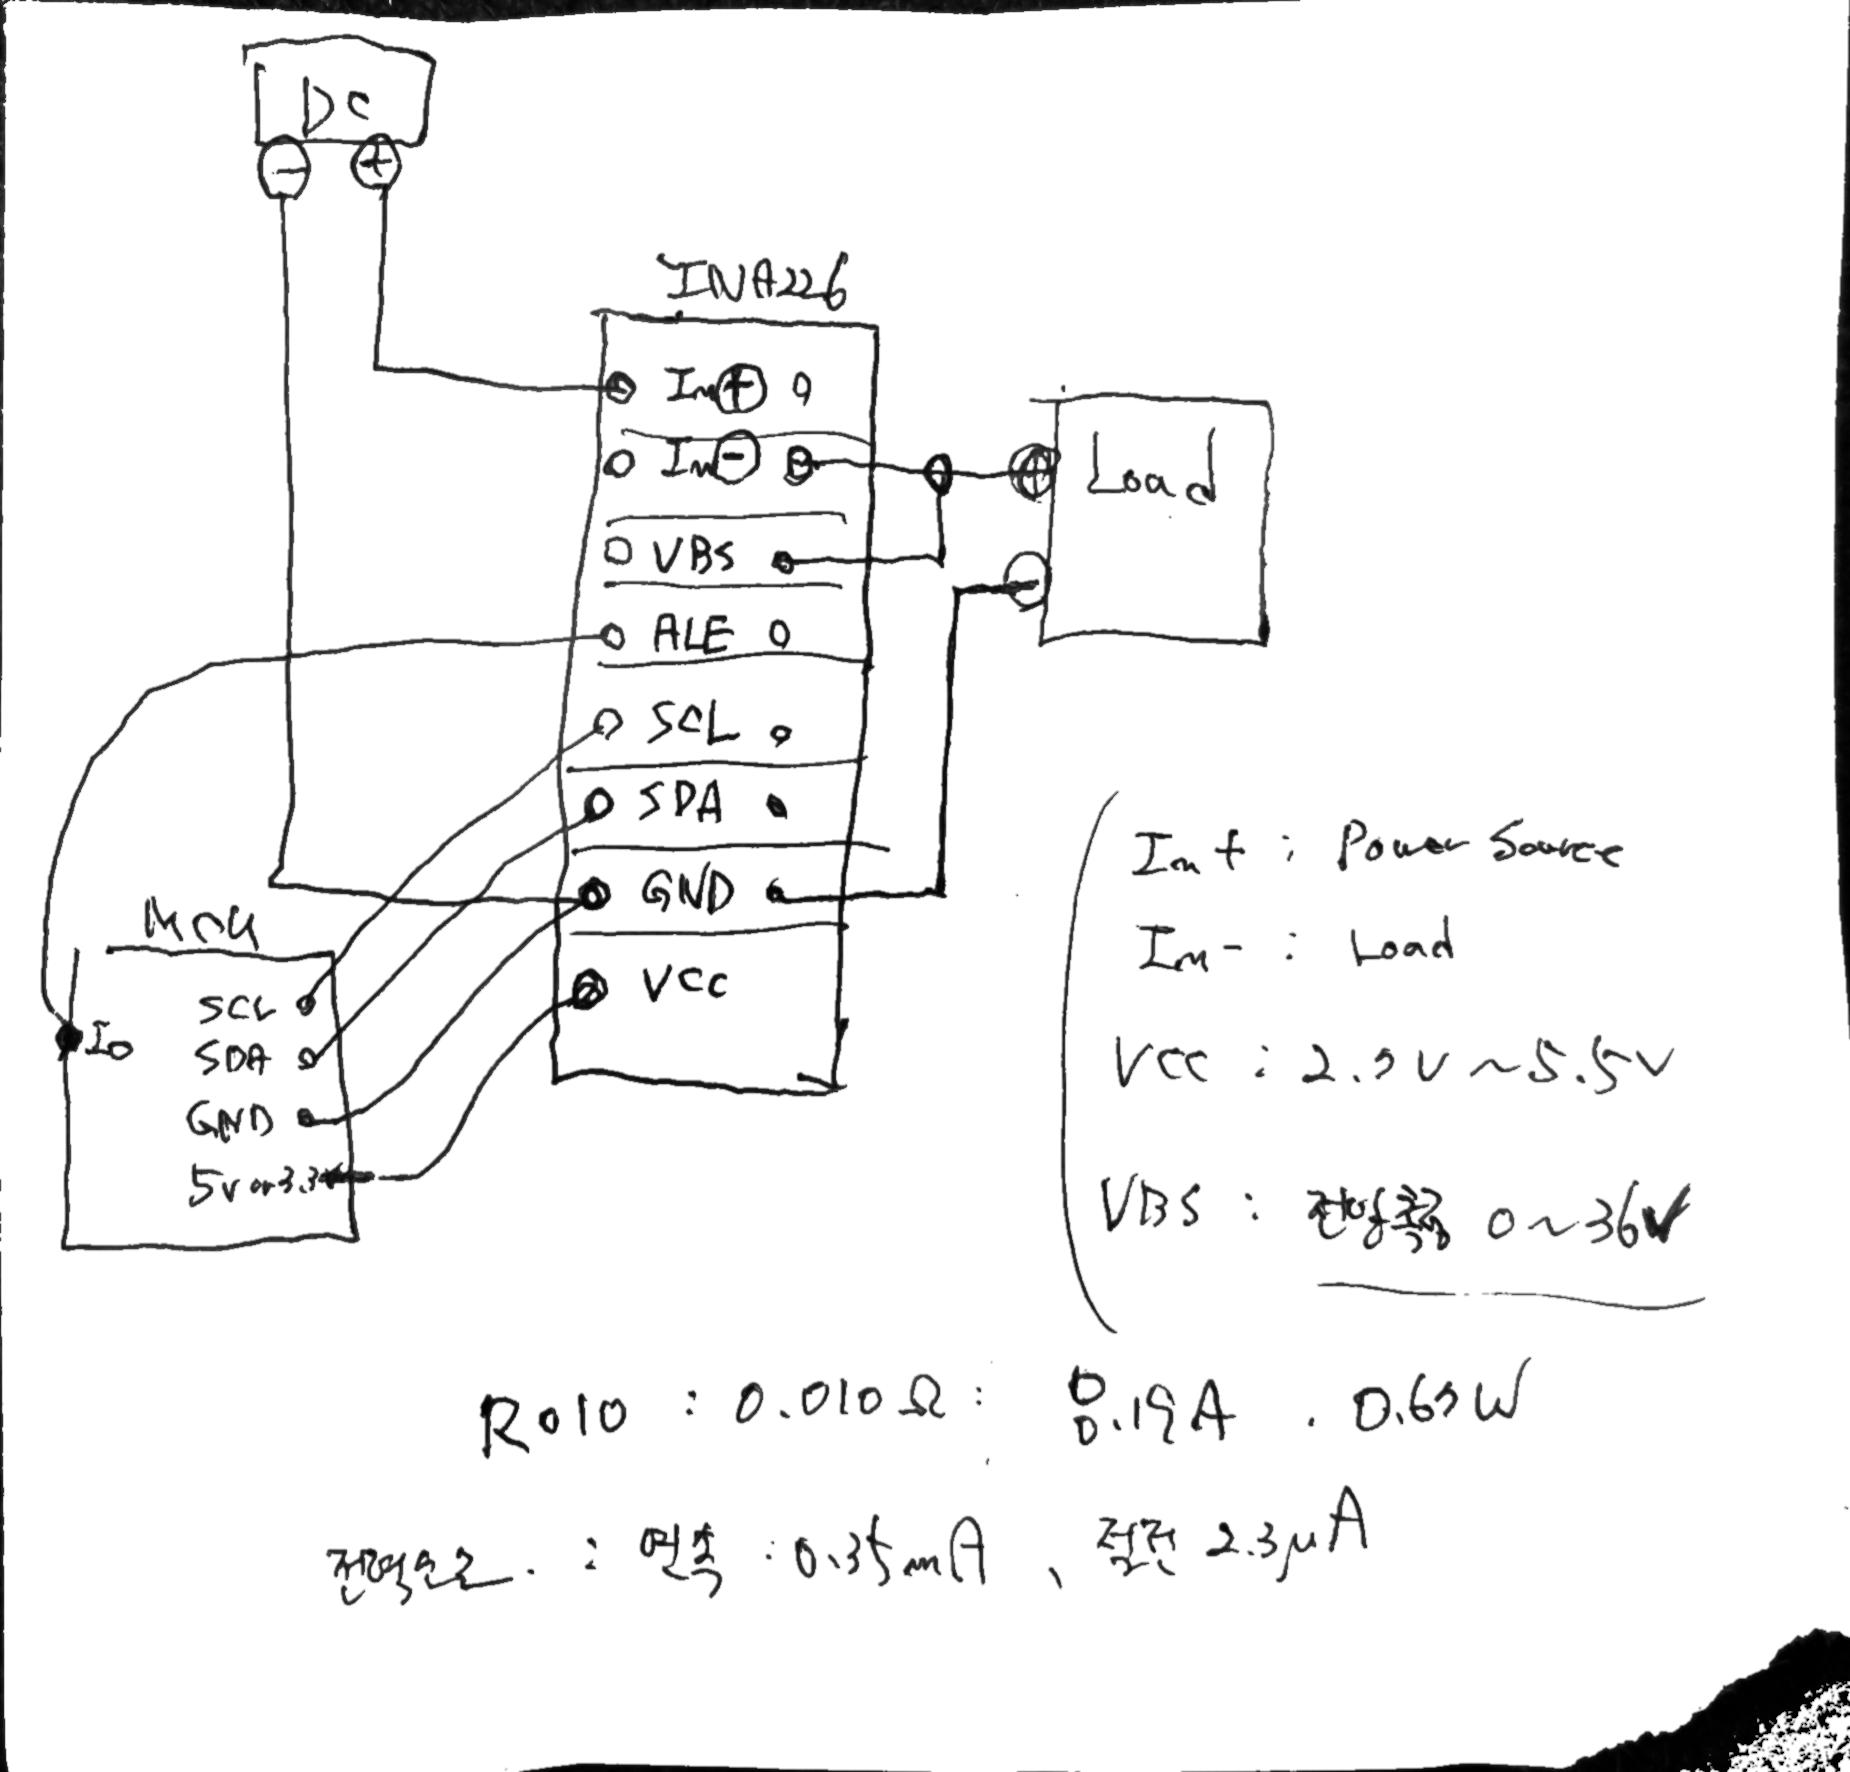 DC
- +
INA226
In+
In-
VBS
ALE
SCL
SDA
GND
VCC
+ Load
-
MCU
IO
SCL
SDA
GND
5V or 3.3V
In+ : Power Source
In- : Load
VCC : 2.7V ~ 5.5V
VBS : 0 ~ 36V
R010 : 0.010Ω : 8.19A . 0.67W
전력소모 : 연속 : 0.35mA , 절전 2.3μA